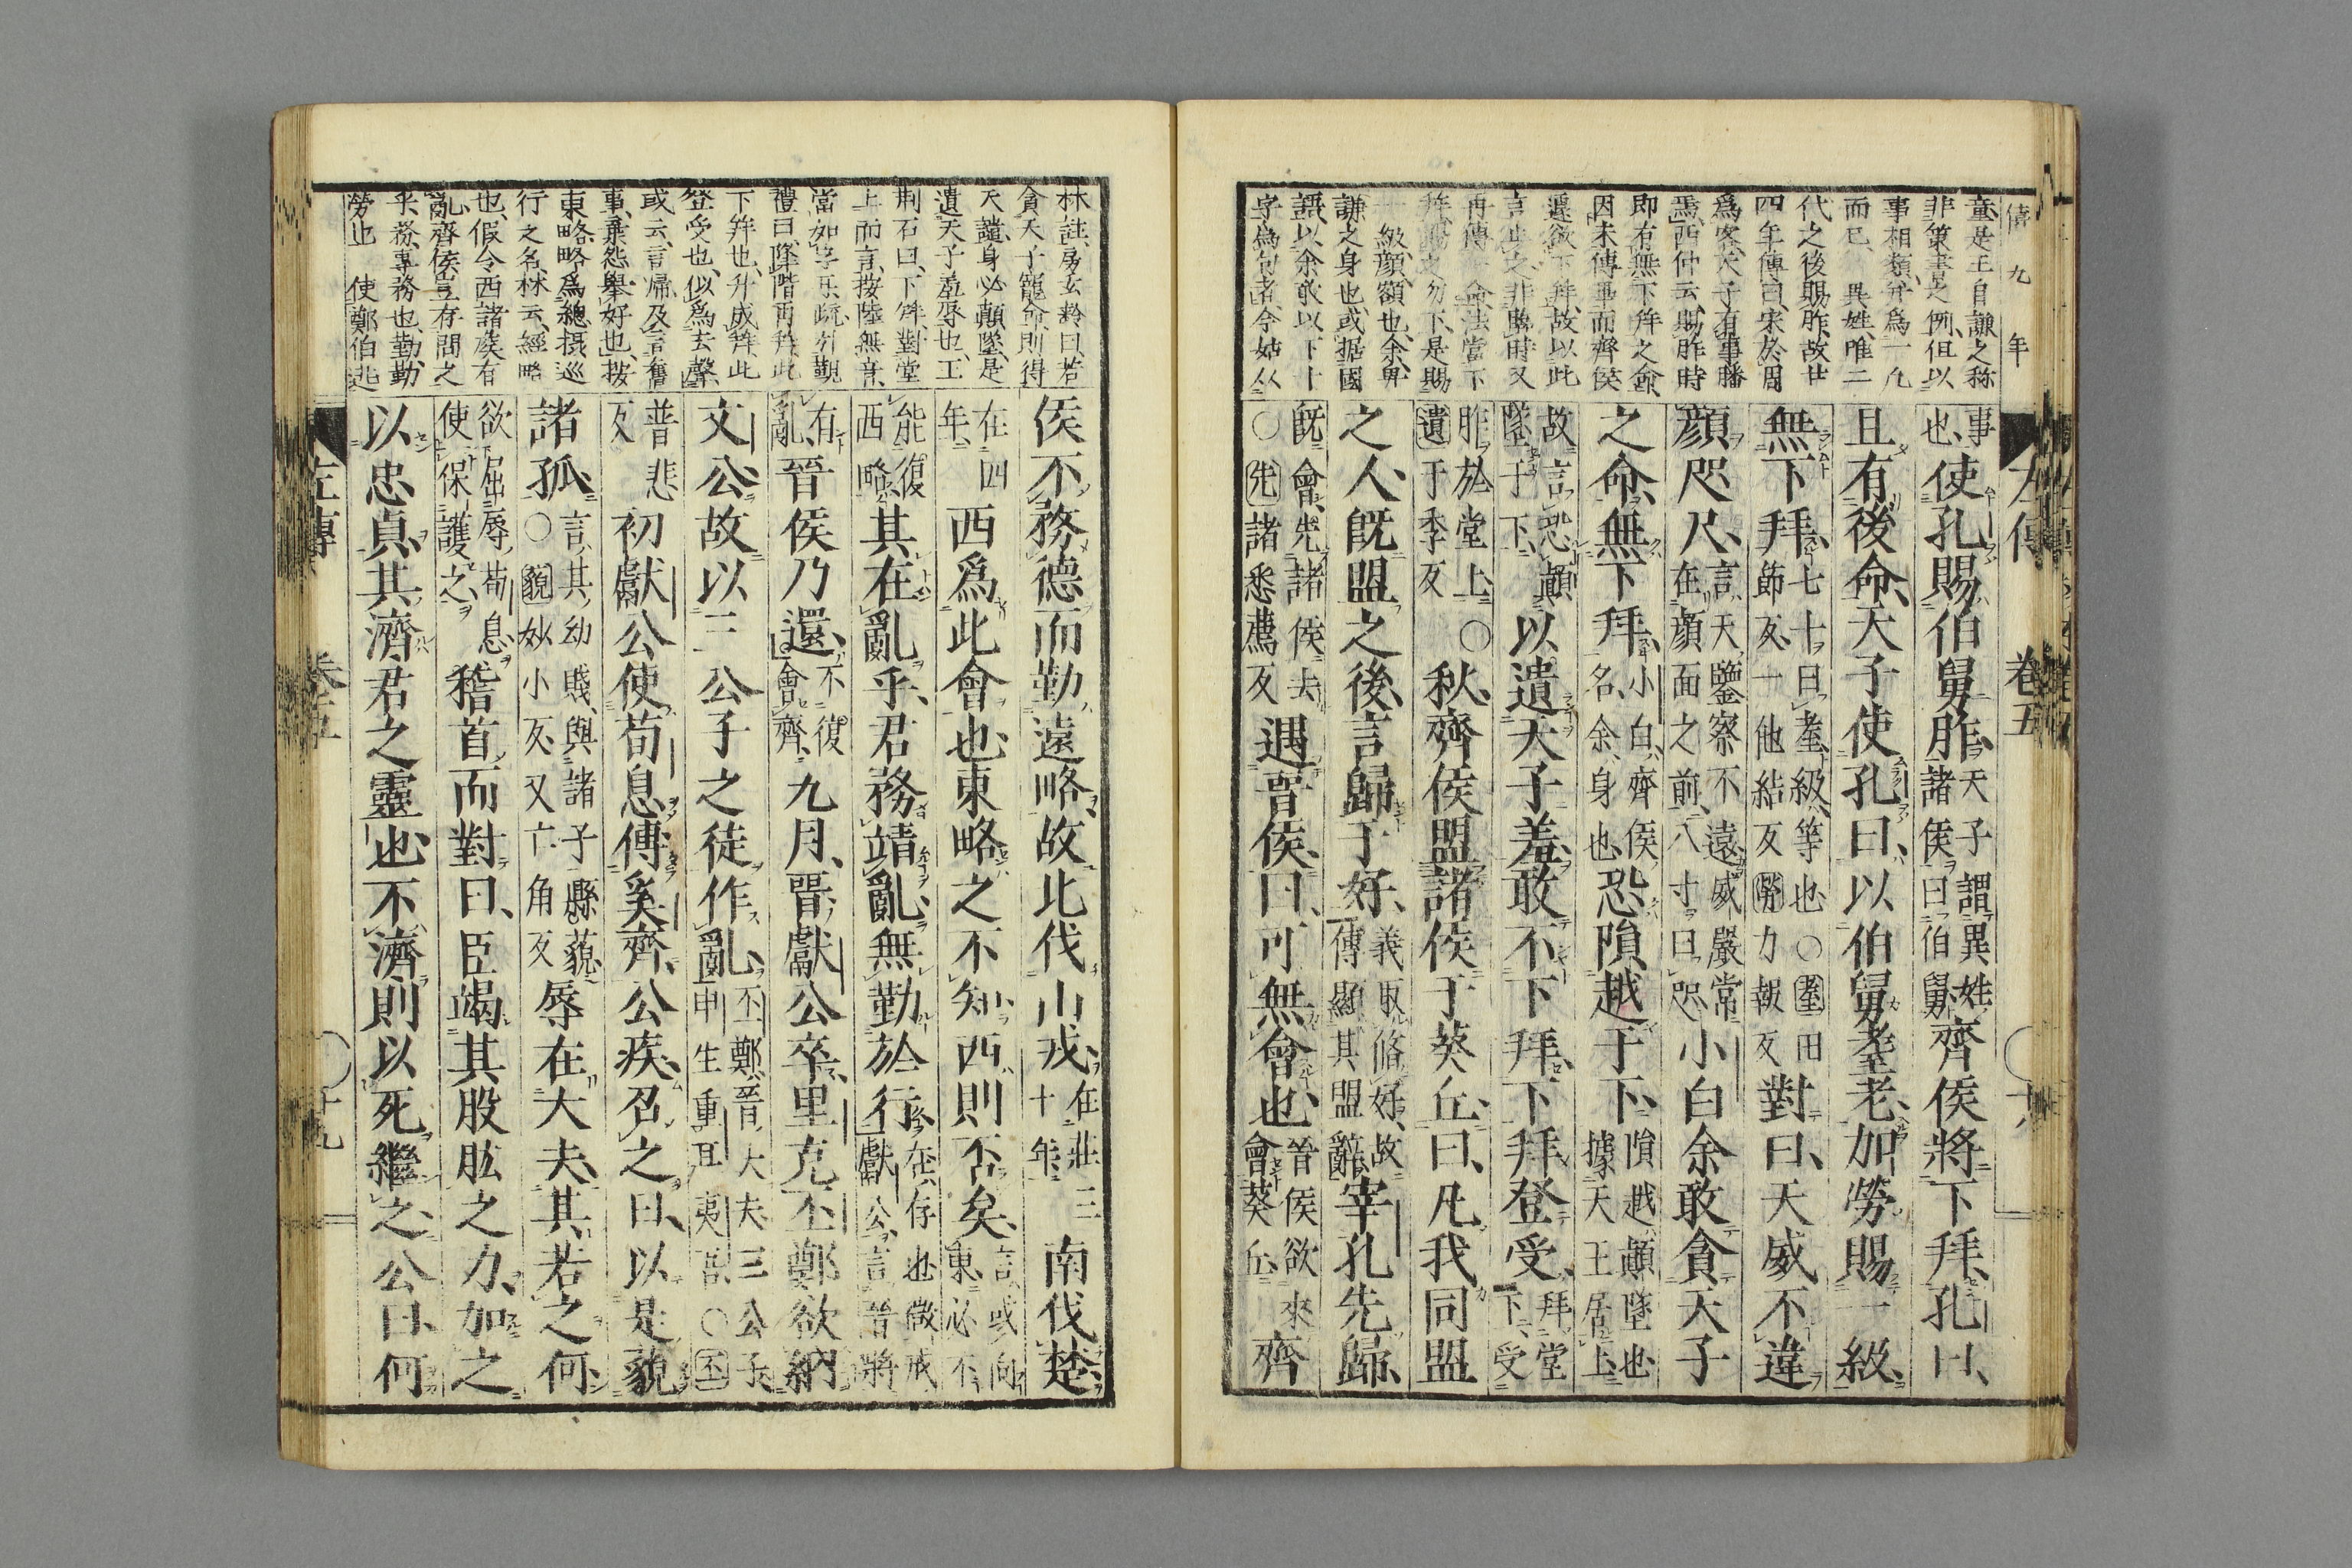 僖九年
童是王自謙之称
非策書之例但以
事相類并為一凡
而已 異姓唯二
代之後賜胙故廿
四年傳曰宋於周
為客天子有事膰
焉西仲云賜胙時
即有無下拜之命
因未傳畢而齊侯
遽欲下拜故以此
言止之非臨時又
再傳一命法當下
拜賜之勿下是賜
一級顏額也余畀
謙之身也或据國
語以余敢以下十
字為句者今姑从
左傳 卷五 十八
事也使孔賜伯舅胙天子謂異姓諸侯曰伯舅齊侯將下拜孔曰
且有後命天子使孔曰以伯舅耋老加勞賜一級
無下拜七十曰耋級等也○耋田節反一他結反勞力報反對曰天威不違
顏咫尺言天鑒察不遠威嚴常在顏面之前八寸曰咫小白余敢貪天子
之命無下拜小白齊侯名余身也恐隕越于下隕越顛墜也據天王居上
故言恐顛墜于下以遺天子羞敢不下拜下拜登受拜堂下受
胙於堂上○遺于季反秋齊侯盟諸侯于葵丘曰凡我同盟
之人既盟之後言歸于好義取脩好故傳顯其盟辭宰孔先歸
既會先諸侯去○先諸悉薦反遇晉侯曰可無會也晉侯欲來會葵丘齊
林註房玄齡曰若
貪天子寵命則得
天譴身必顛墜是
遺天子羞辱也王
荊石曰下拜對堂
上而言按陸無音
當如字乐疏引覲
禮曰降階再拜此
下拜也升成拜此
登受也似為去聲
或云言歸及言舊
事棄怨舉好也按
東略略為總摂巡
行之名林云經略
也假令西諸矦有
亂齊侯豈存問之
乎務專務也勤勤
勞也 使鄭伯逃
侯不務德而勤遠略故北伐山戎在莊三十年南伐楚
在四年西為此會也東略之不知西則否矣言或向東必不
能復西略其在亂乎君務靖亂無勤於行在存也微戒獻公言晉將
有亂晉侯乃還不復會齊九月晉獻公卒里克丕鄭欲納
文公故以三公子之徒作亂丕鄭晉大夫三公子申生重耳夷吾○丕
普悲反初獻公使荀息傅奚齊公疾召之曰以是藐
諸孤言其幼賤與諸子縣藐○藐妙小反又亡角反辱在大夫其若之何
欲屈辱荀息使保護之稽首而對曰臣竭其股肱之力加之
以忠貞其濟君之靈也不濟則以死繼之公曰何
左傳 卷五 十九